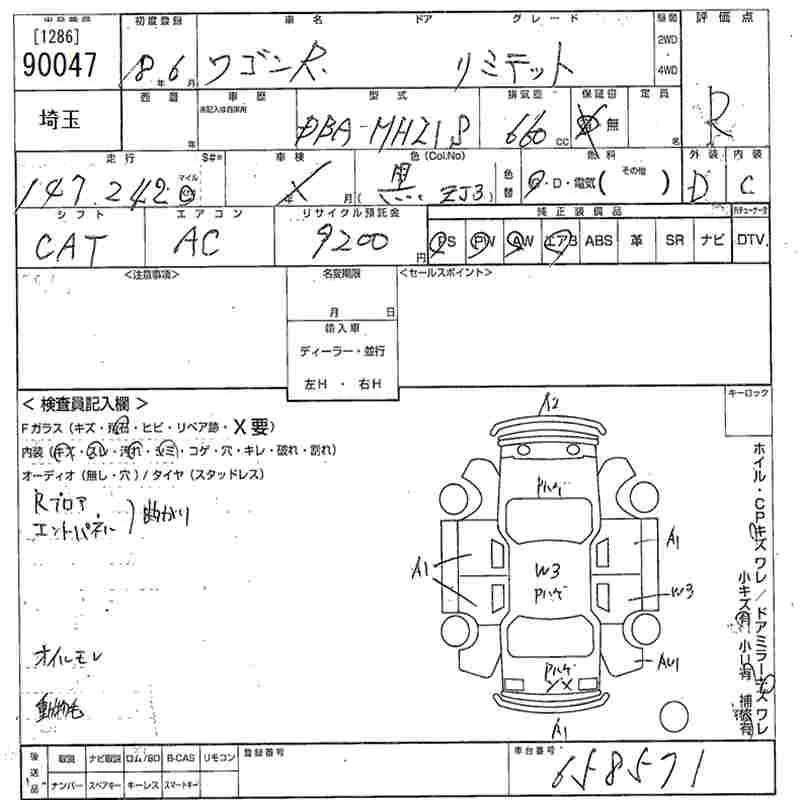 [1286]
初度登録 車名 ドア グレード 駆動 評価点
90047 18年6月 ワゴンR リミテット 2WD・4WD
埼玉 西暦 年 車歴 未記入は自家用 型式 排気量 保証書 定員 R
DBA-MH21S 660cc 有 無 名
走行 S#= 車検 色(Col.No) 燃料 外装 内装
147,242 マイル 年 X 月 黒 ZJ3 色替 G・D・電気( その他 ) D C
シフト エアコン リサイクル預託金 純正装備品
CAT AC 9200円 PS PW AW エアB ABS 革 SR ナビ DTV
<注意事項> 名変期限 <セールスポイント>
月 日
輸入車
ディーラー・並行
左H・右H
<検査員記入欄> キーロック
Fガラス(キズ・飛石・ヒビ・リペア跡・X要)
内装(キズ・スレ・汚れ・シミ・コゲ・穴・キレ・破れ・割れ)
オーディオ(無し・穴)/タイヤ(スタッドレス)
Rフロア
エンドパネル 曲がり
オイルモレ
動物毛
A2
Pハゲ
A1
A1
W3
Pハゲ
W3
AU1
Pハゲ
A1
ホイル・CPキズ ワレ/ドアミラーキズ ワレ
小キズ有 小U有 補修有
後送品 取説 ナビ取説 ロム/SD B-CAS リモコン 登録番号 車台番号
ナンバー スペアキー キーレス スマートキー 658571